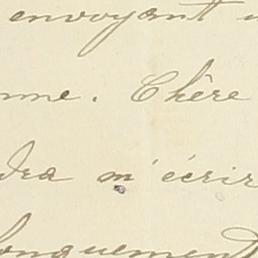 envoyant
nne. Chère
dra m'écrir
longuement